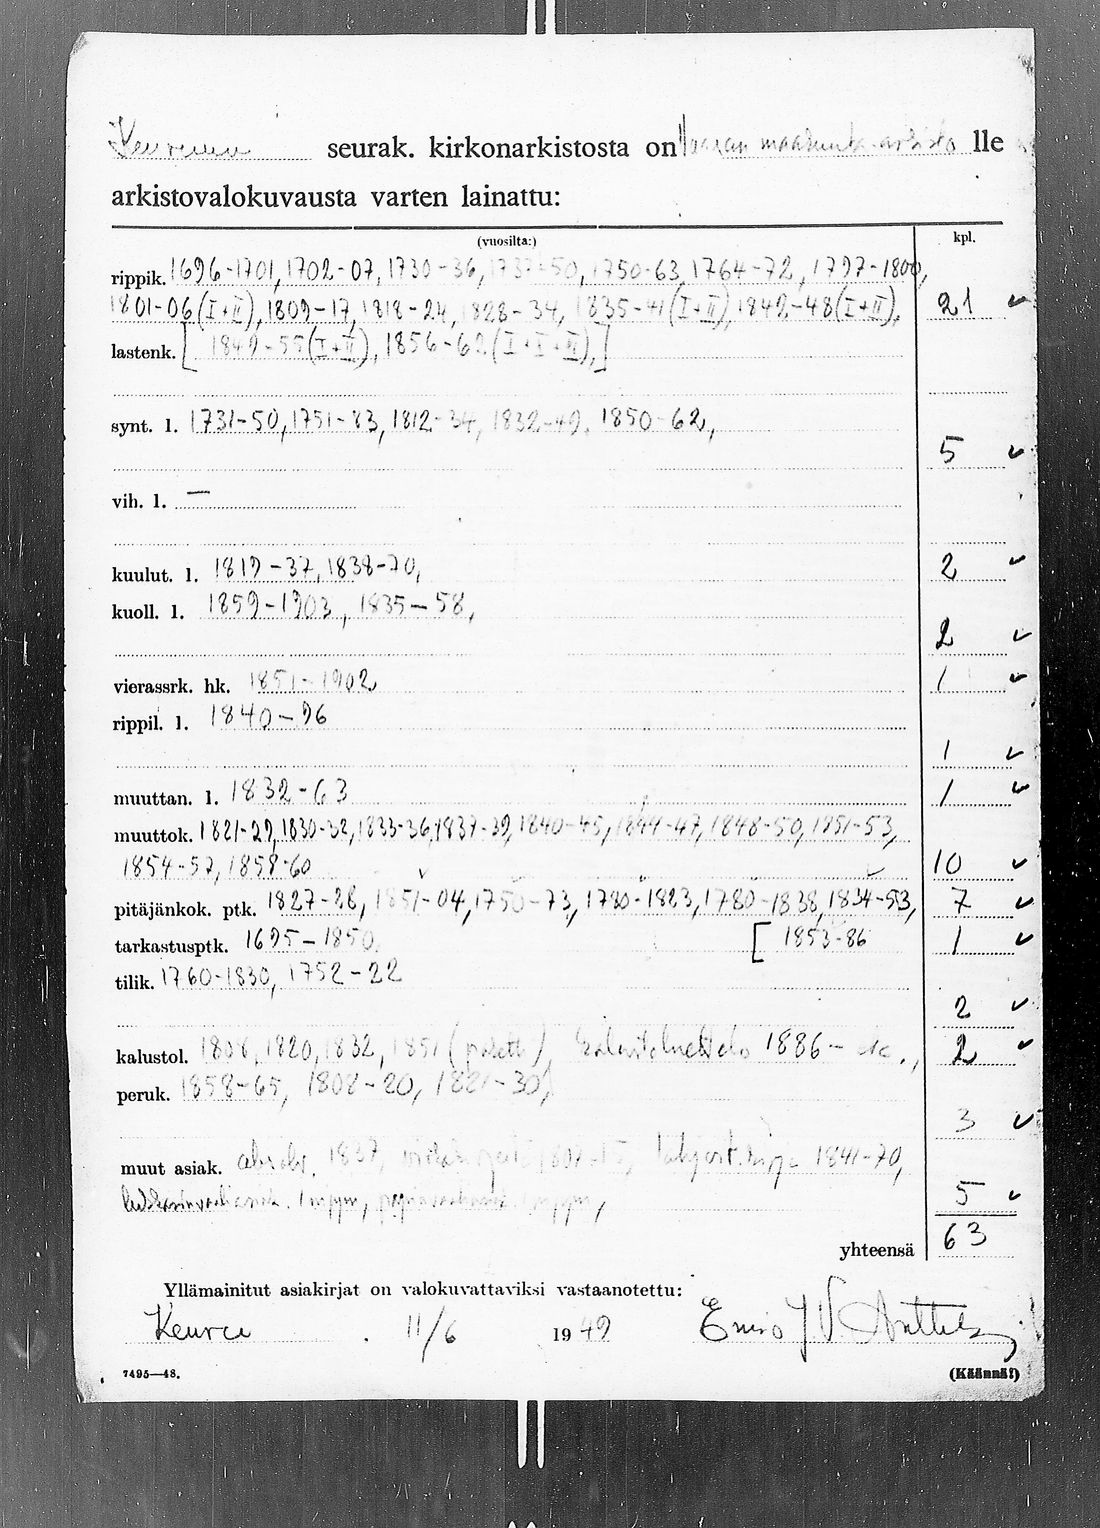 Keuruun seurak. kirkonarkistosta on Vaasan maakunta-arkisto lle
arkistovalokuvausta varten lainattu:
(vuosilta:) kpl.
rippik. 1696-1701, 1702-07, 1730-36, 1737-50, 1750-63, 1764-72, 1797-1800,
1801-06 (I+II), 1809-17, 1818-24, 1828-34, 1835-41 (I+II), 1842-48 (I+II), 21 ✓
lastenk. [1849-55 (I+II), 1856-62 (I+II+III),]
synt. l. 1731-50, 1751-83, 1812-34, 1832-49, 1850-62,
5 ✓
vih. l. —
kuulut. l. 1819-37, 1838-70, 2 ✓
kuoll. l. 1859-1903, 1835-58,
2 ✓
vierassrk. hk. 1851-1902 1 ✓
rippil. l. 1840-96
1 ✓
muuttan. l. 1832-63 1 ✓
muuttok. 1821-29, 1830-32, 1833-36, 1837-39, 1840-45, 1844-47, 1848-50, 1851-53,
1854-57, 1858-60 10 ✓
pitäjänkok. ptk. 1827-28, 1851-04, 1750-73, 1780-1823, 1780-1838, 1834-53, 7 ✓
tarkastusptk. 1695-1850, [1853-86 1 ✓
tilik. 1760-1830, 1752-22
2 ✓
kalustol. 1808, 1820, 1832, 1851 ( ), 1886- 2 ✓
peruk. 1858-65, 1808-20, 1821-30,
3 ✓
muut asiak. 1837, 1841-70,
5 ✓
yhteensä 63
Yllämainitut asiakirjat on valokuvattaviksi vastaanotettu:
Keuruu . 11/6 1949 Eino J V Anttila
7495—48. (Käännä!)